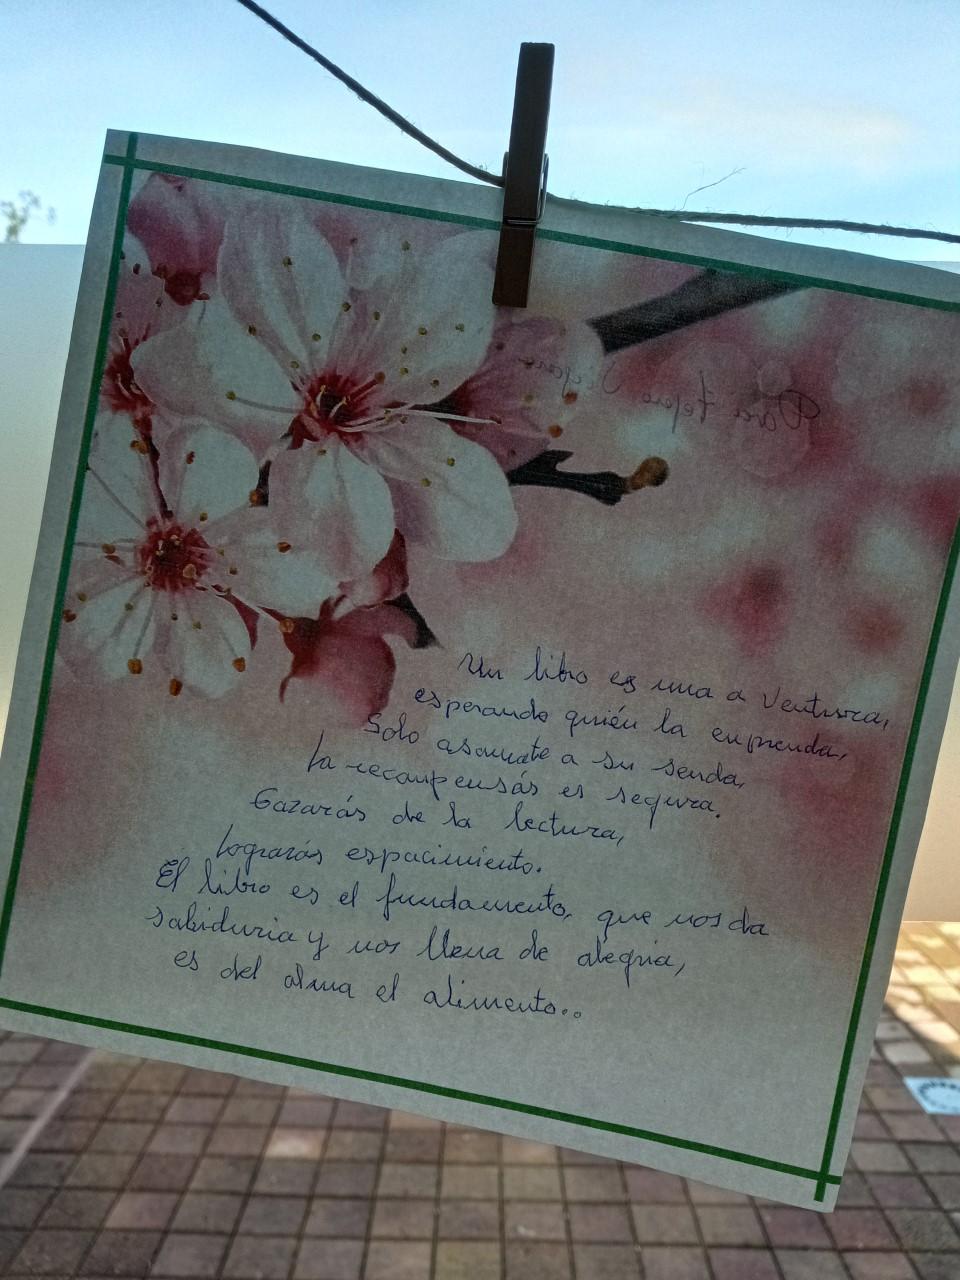 Un libro es una a Ventura,
esperando quién la emprenda,
Solo asomate a su senda,
La recompensás es segura.
Gozarás de la lectura,
Lograrás espacimiento.
El libro es el fundamento, que nos da
sabiduria y nos llena de alegria,
es del alma el alimento..